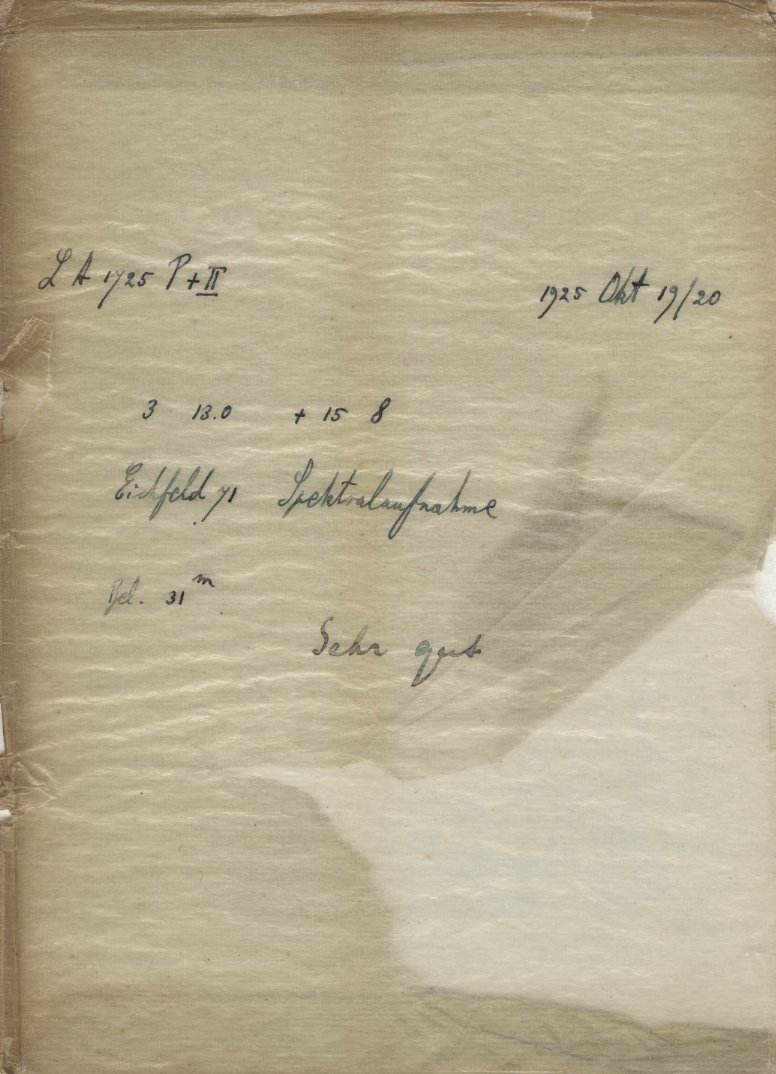 L A 1725 P + II
1925 Okt 19/20
3 13.0 + 15 8
Eichfeld 71 Spektralaufnahme
Bel. 31 m
Sehr gut